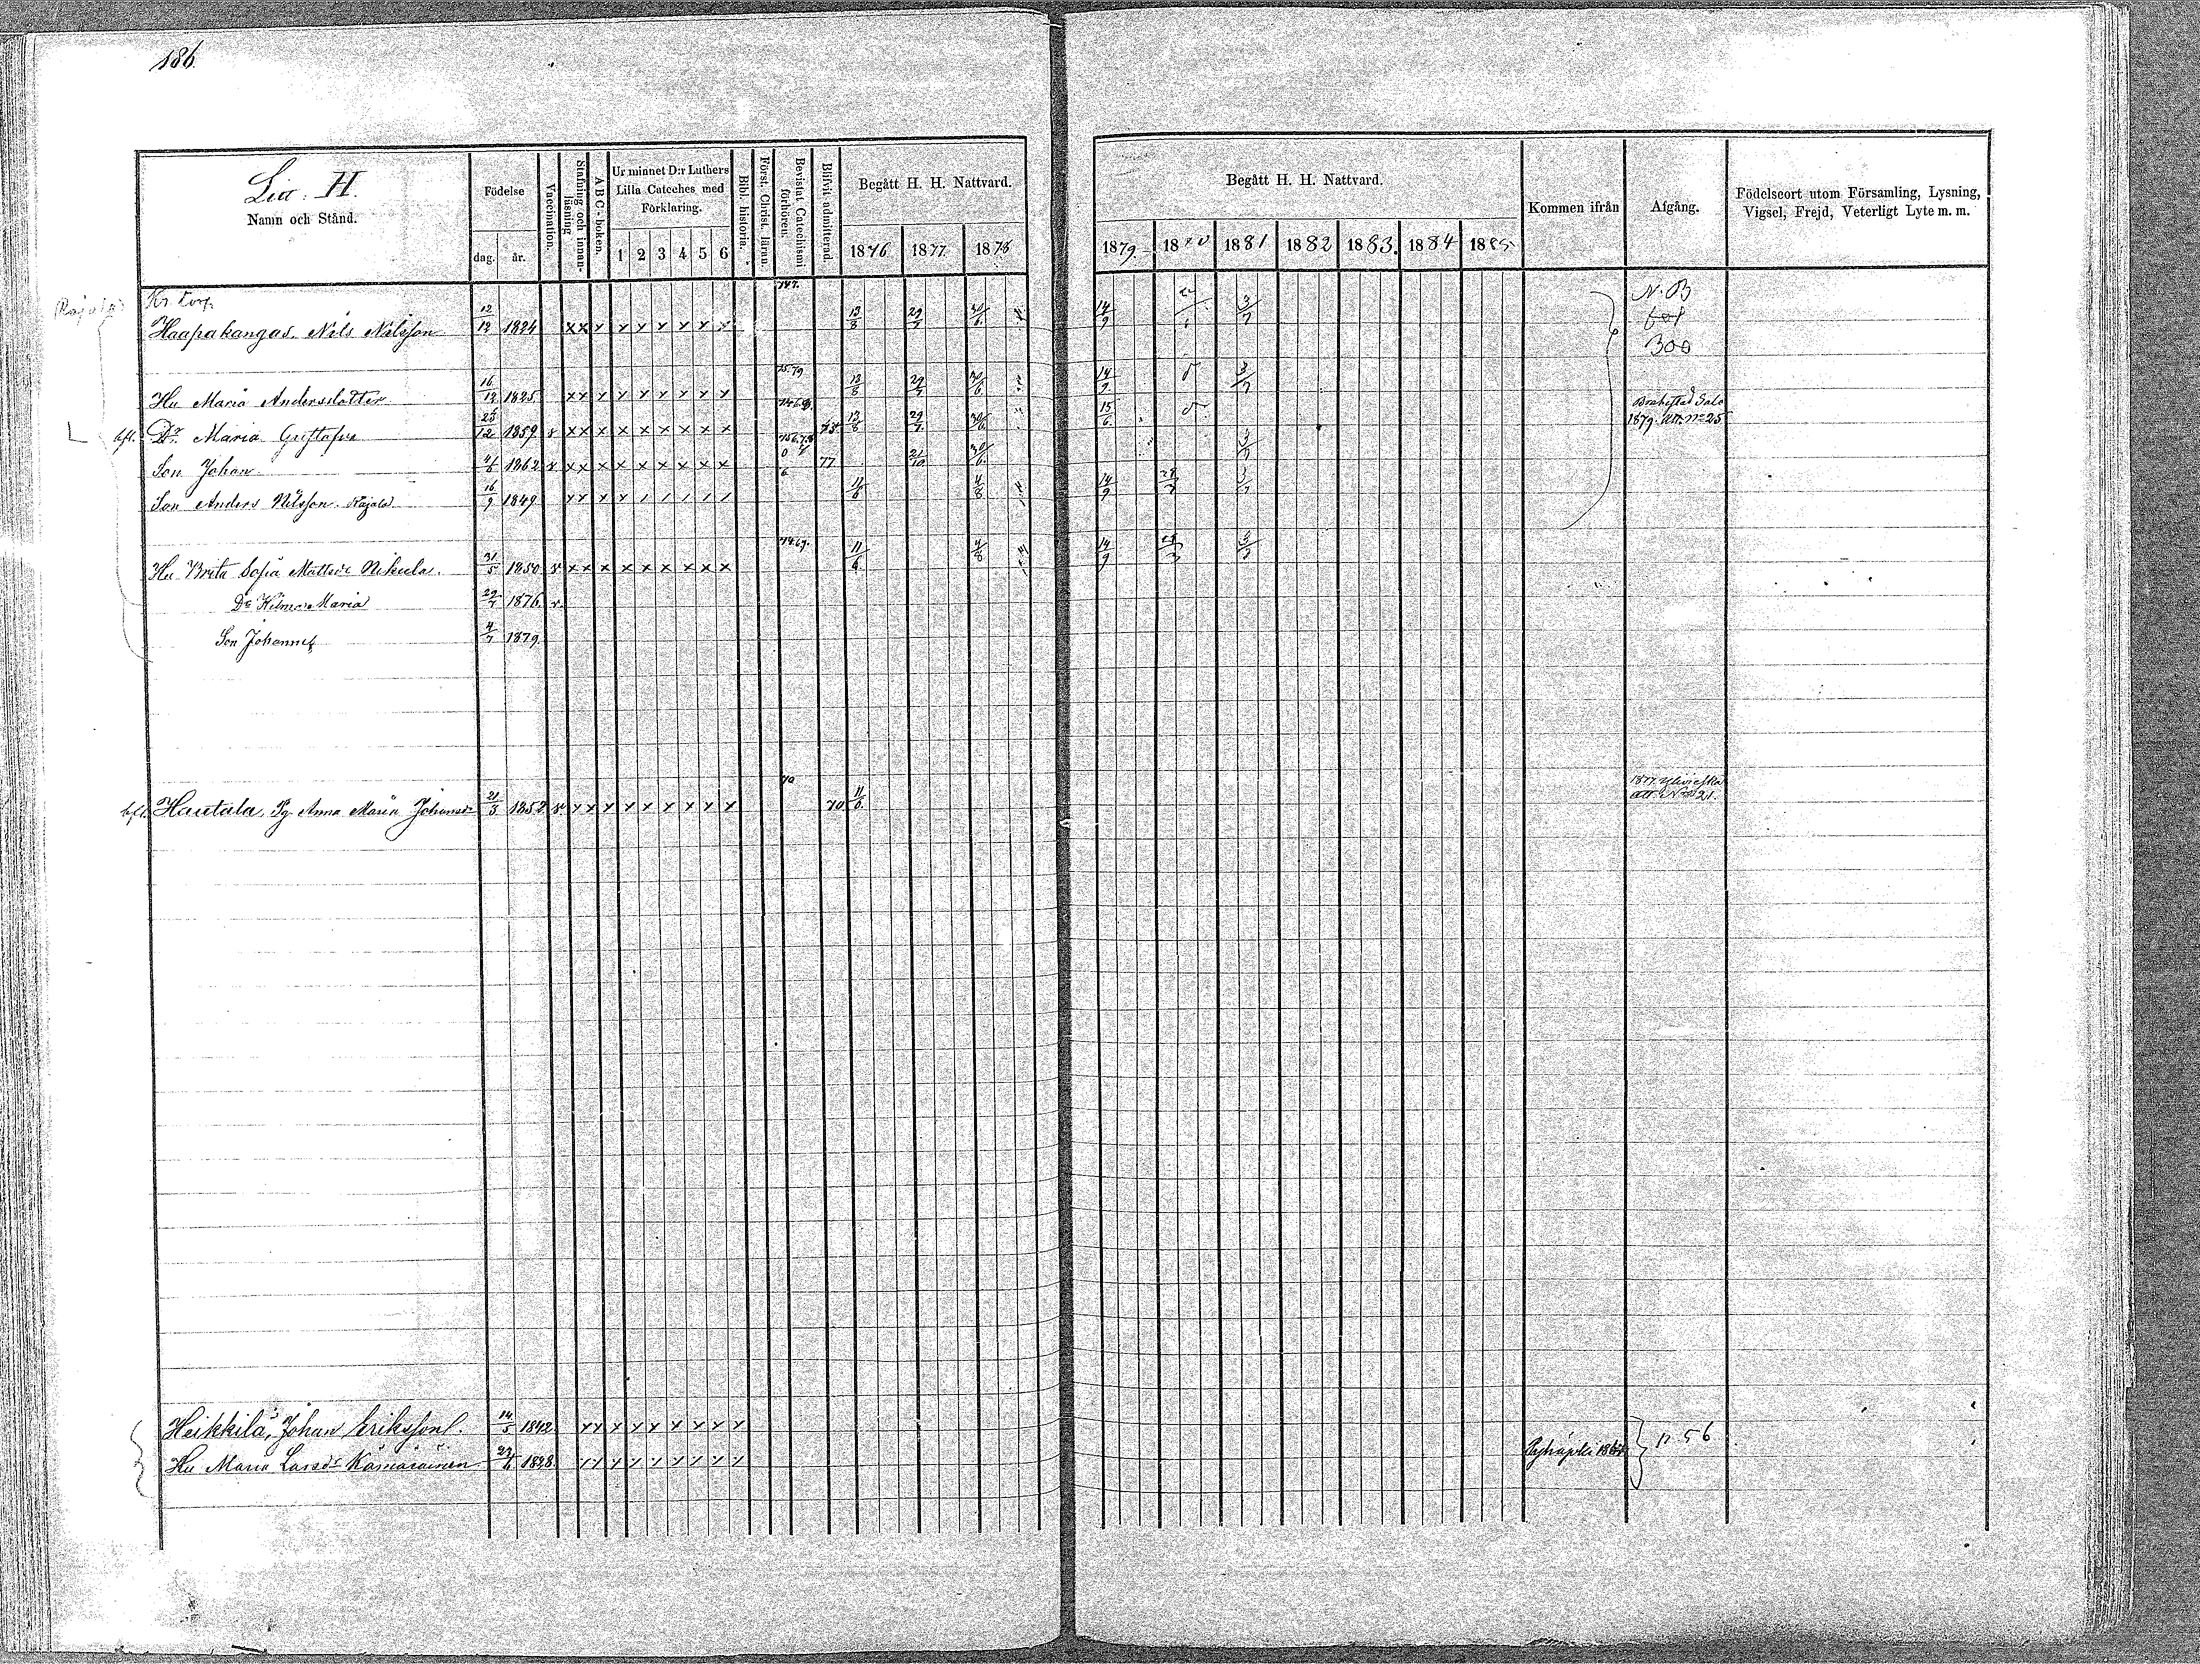 186.
Litt. H.
Namn och Stånd.
Födelse
dag. år.
Vaccination.
Stafning och innanläsning
A B C-boken.
Ur minnet D:r Luthers
Lilla Cateches med
Förklaring.
1 2 3 4 5 6
Bibl. historia.
Först. Christi. läran.
Bevistat Catechismi förhören.
Blifvit admitterad.
Begått H. H. Nattvard.
1876 1877. 1878
Begått H. H. Nattvard.
1879. 1880 1881 1882 1883. 1884 1885
Kommen ifrån
Afgång.
Födelseort utom Församling, Lysning,
Vigsel, Frejd, Veterligt Lyte m. m.
(Rajala)
Kr. torp.
Haapakangas. Nils Nilsson 12/12 1824 x x x x x x x x x 13/8 29/7 30/6 14/9 3/7
N. B
300
Hu Maria Andersdotter 16/12 1825 x x x x x x x x x 13/8 29/7 30/6 14/9 3/7
bft. Dr. Maria Gustafva 25/12 1859 v x x x x x x x x x 13/8 29/7 30/6 15/6 Brahestad Salo
1879. att. No 25
Son Johan 1862 v x x x x x x x x x 77 21/10 30/6 3/7
Son Anders Nilsson Rajala 16/9 1849 x x x x / / / / / 11/6 4/8 14/9 3/7
Hu Brita Sofia Mattsdr Nikula. 31/5 1850 v x x x x x x x x x 11/6 4/8 14/9 3/7
Dr Hilma Maria 29/7 1876 v.
Son Johannes 4/7 1879
bft. Hautala, Pg. Anna Maria Johansdr 21/3 1852 v x x x x x x x x x 70 70 11/6 1877. Ylivieska
att. No 21.
Heikkilä, Johan Eriksson 14/5 1842 x x x x x x x x x
Hu Maria Larsdr Kämäräinen 1828 x x x x x x x x x
p 56